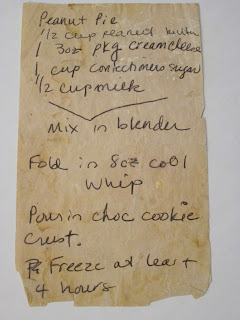 Peanut Pie
1/2 cup peanut butter
1 3oz pkg creamcheese
1 cup confectioners sugar
1/2 cup milk
Mix in blender
Fold in 8oz cool
whip
Pour in choc cookie
crust.
Freeze at least
4 hours